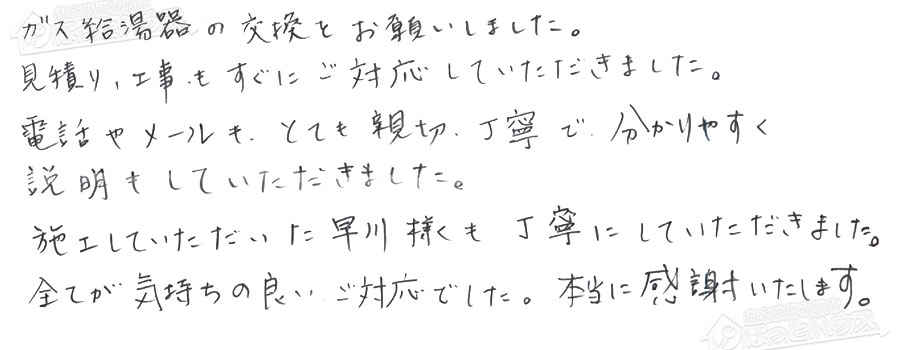 ガス給湯器の交換をお願いしました。
見積り、工事もすぐにご対応していただきました。
電話やメールも、とても親切、丁寧で、分かりやすく
説明もしていただきました。
施工していただいた早川様くも丁寧にしていただきました。
全てが気持ちの良いご対応でした。本当に感謝いたします。
ほっとハウス